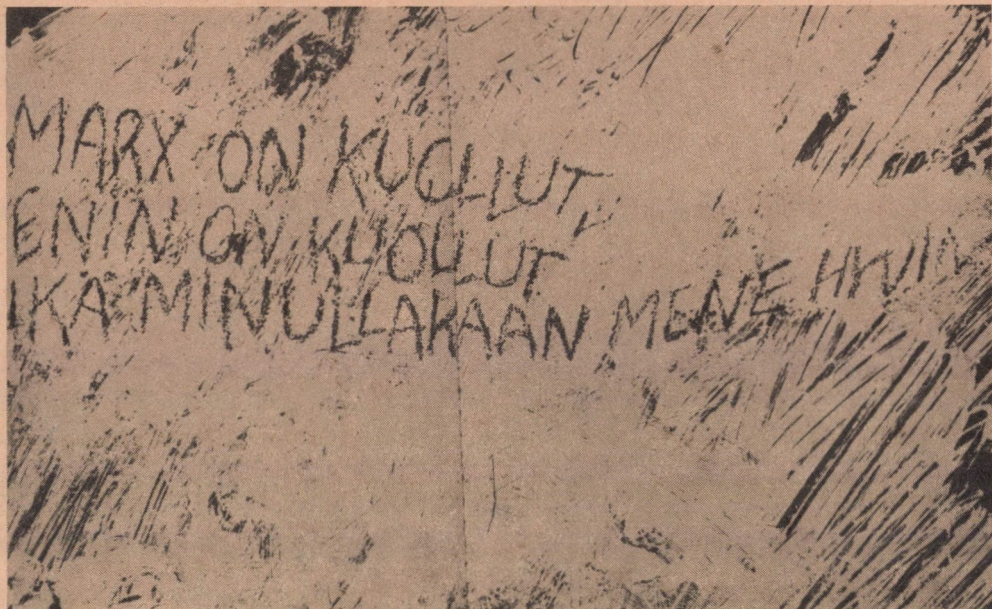 MARX ON KUOLLUT,
ENIN ON KUOLLUT
IKA MINULLAKAAN MENE HYVIN